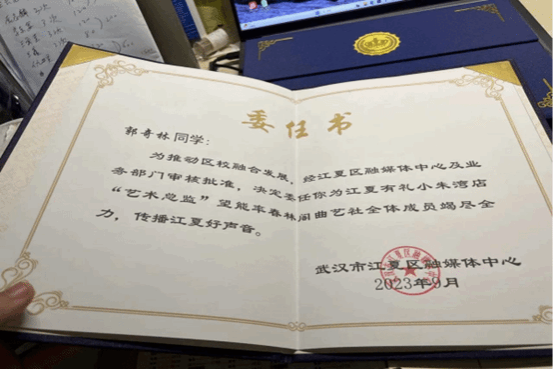 委任书
郭奇林同学：
为推动区校融合发展，经江夏区融媒体中心及业
务部门审核批准，决定委任你为江夏有礼小朱湾店
“艺术总监”望能率春林阁曲艺社全体成员竭尽全
力，传播江夏好声音。
武汉市江夏区融媒体中心
2023年9月